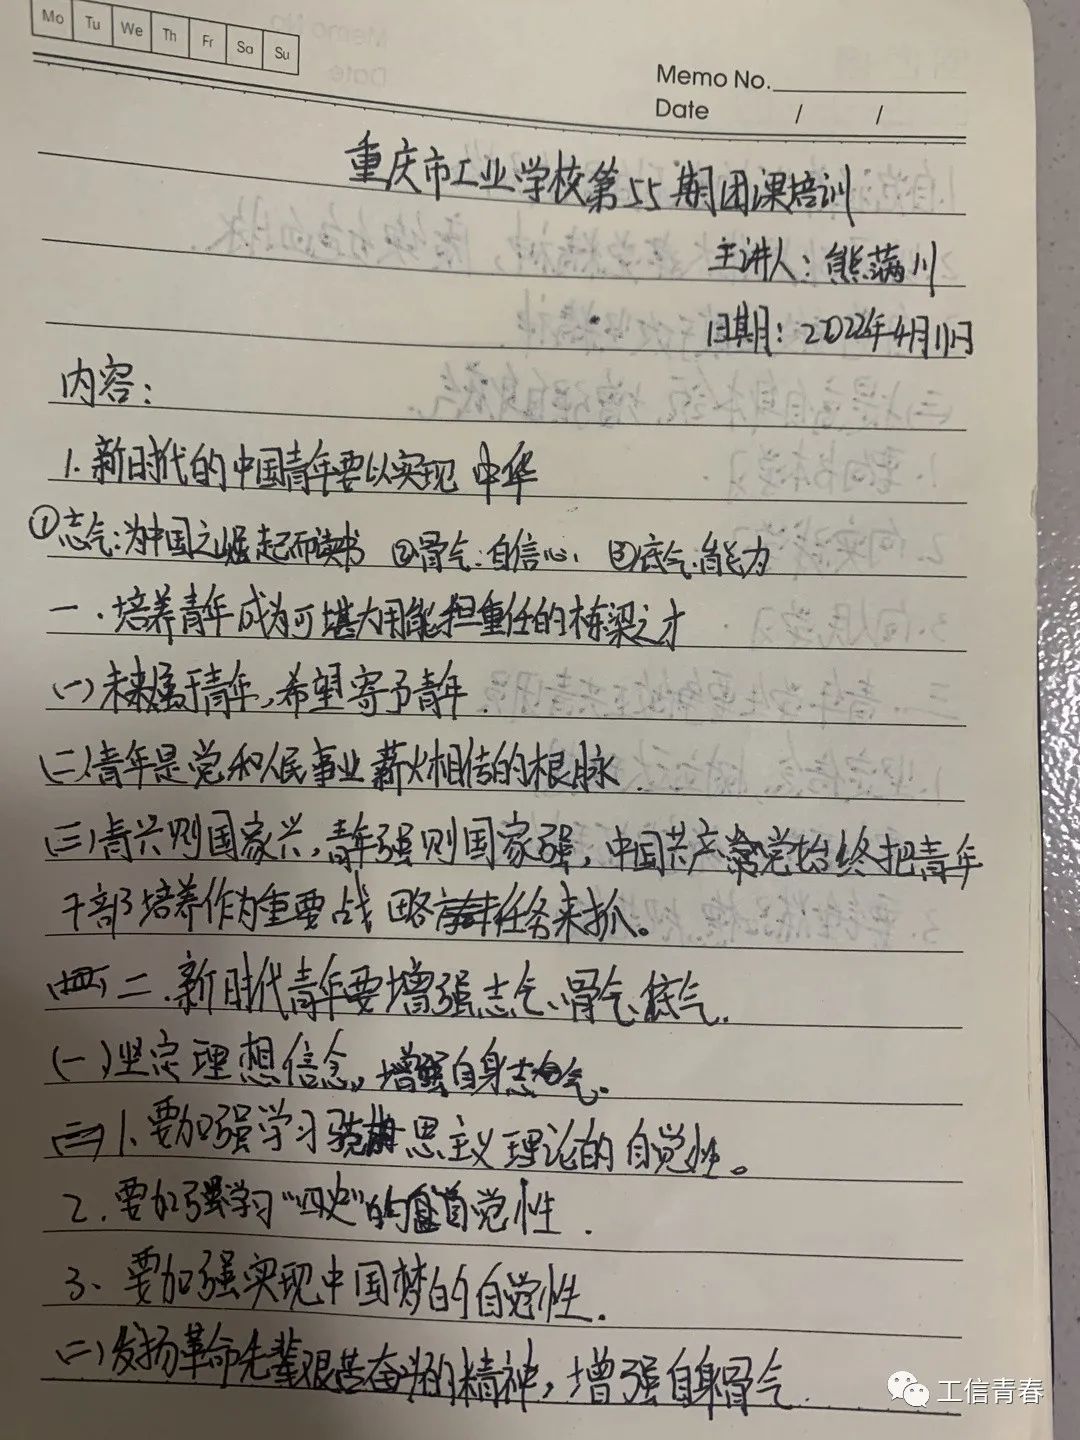 Mo Tu We Th Fr Sa Su
Memo No.
Date / /
重庆市工业学校第55期团课培训
主讲人：熊满川
日期：2022年4月11日
内容：
1.新时代的中国青年要以实现 中华
①志气：为中国之崛起而读书 ②骨气：自信心 ③底气：能力
一.培养青年成为可堪大用能担重任的栋梁之才
(一)未来属于青年,希望寄予青年.
(二)青年是党和人民事业薪火相传的根脉.
(三)青兴则国家兴,青年强则国家强,中国共产党始终把青年
干部培养作为重要战略任务来抓。
二.新时代青年要增强志气、骨气、底气.
(一)坚定理想信念,增强自身志气。
1.要加强学习 思主义理论的自觉性。
2.要加强学习"四史"的自觉性.
3、要加强实现中国梦的自觉性.
(二)发扬革命先辈艰苦奋斗的精神,增强自身骨气.
工信青春